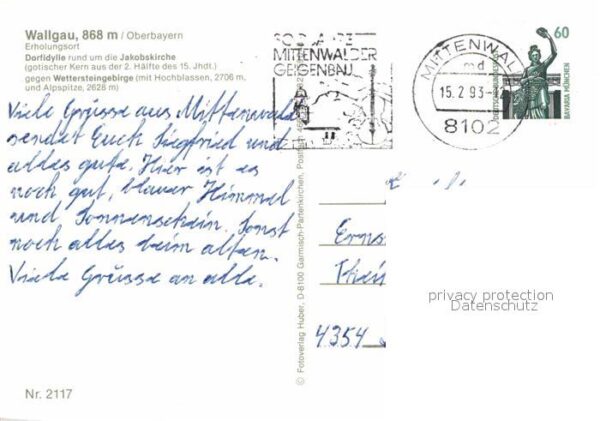 Wallgau, 868 m / Oberbayern
Erholungsort
Dorfidylle rund um die Jakobskirche
(gotischer Kern aus der 2. Hälfte des 15. Jhdt.)
gegen Wettersteingebirge (mit Hochblassen, 2706 m,
und Alpspitze, 2628 m)
Viele Grüsse aus Mittenwald
sendet Euch Siegfried und
alles gute. Hier ist es
noch gut, blauer Himmel
und Sonnenschein. Sonst
noch alles beim alten.
Viele Grüsse an alle.
Nr. 2117
© Fotoverlag Huber, D-8100 Garmisch-Partenkirchen, Postfach
MITTENWALDER
GEIGENBAU
MITTENWAL
md
15.2.93
8102
60
DEUTSCHE BUNDESPOST
BAVARIA MÜNCHEN
Erns
4354
privacy protection
Datenschutz